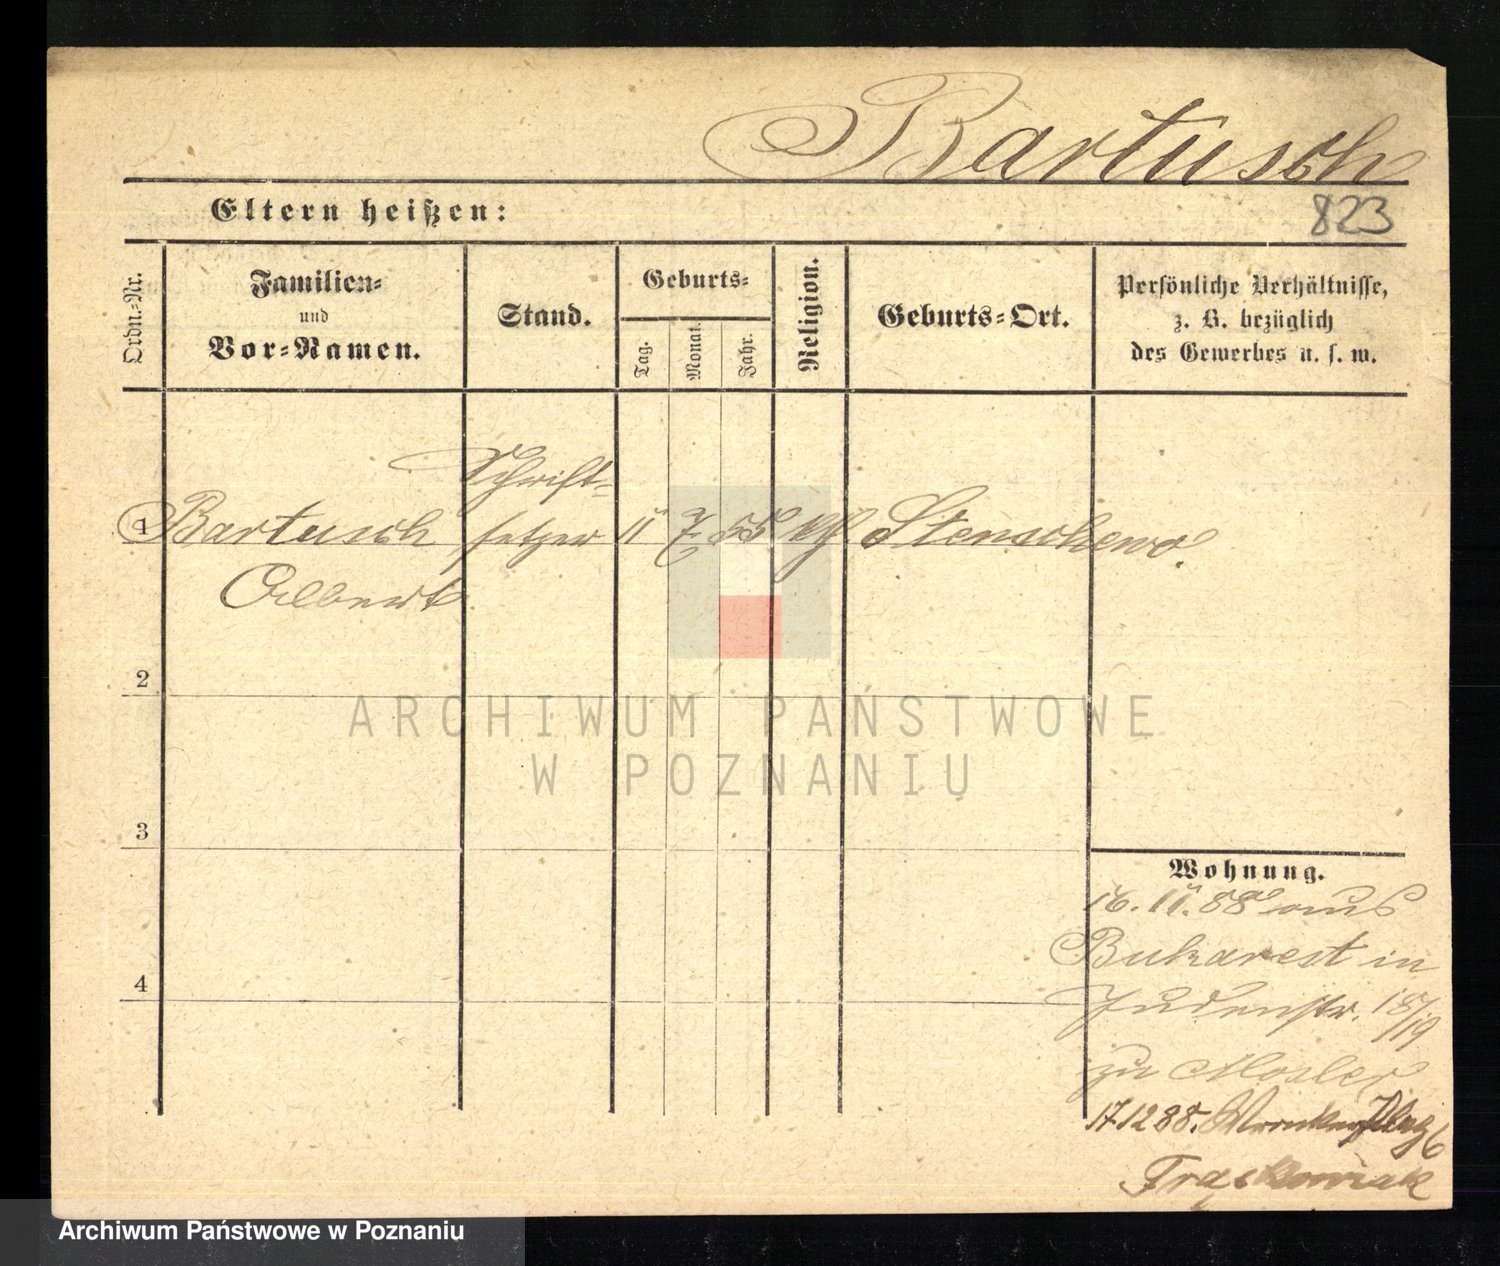 Bartusch
Eltern heißen:
823
Ordn.-Nr.
Familien-
und
Vor-Namen.
Stand.
Geburts-
Tag.
Monat.
Jahr.
Religion.
Geburts-Ort.
Persönliche Verhältnisse,
z. B. bezüglich
des Gewerbes u. s. w.
Schrift-
1 Bartusch setzer 11 7 55 kth Stenschewo.
Albert
2
ARCHIWUM PAŃSTWOWE
W POZNANIU
3
Wohnung.
16. 11. 88 aus
Bukarest in
4
Judenstr. 18/19
zu Mosler
17 12 88. Wronkerplatz 6
Archiwum Państwowe w Poznaniu